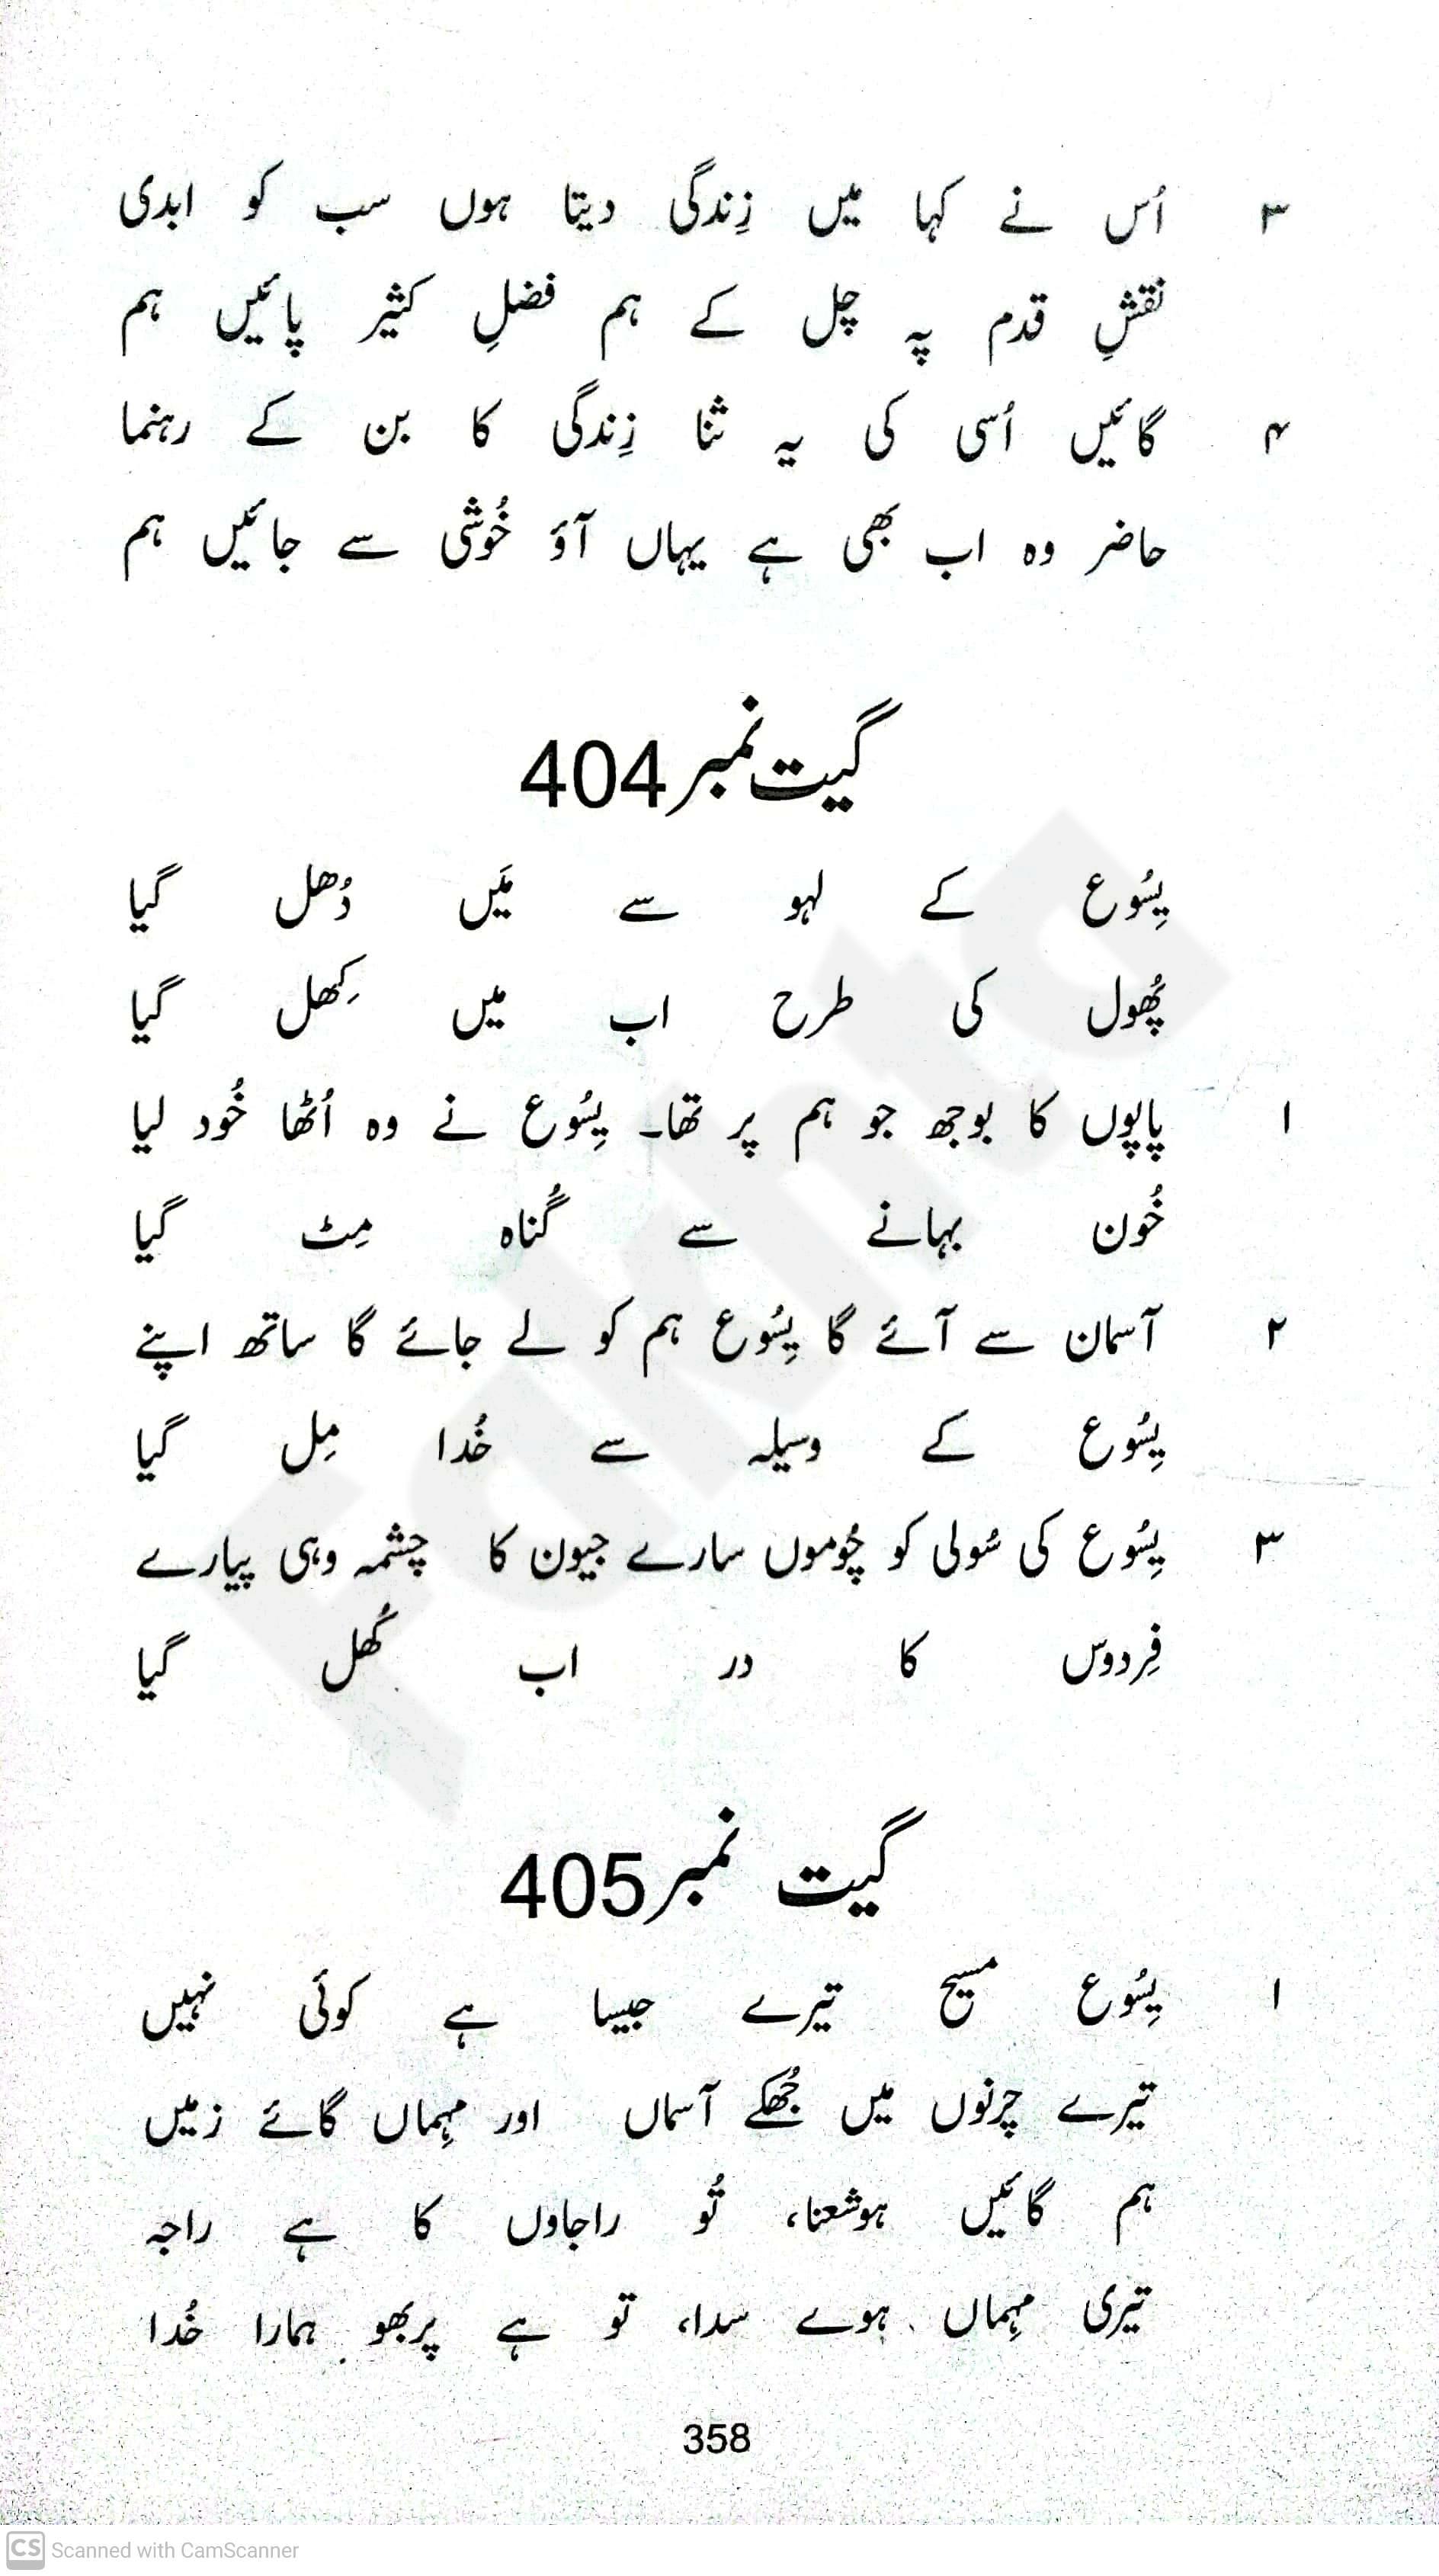 ۳ اُس نے کہا میں زِندگی دیتا ہوں سب کو ابدی
نقشِ قدم پہ چل کے ہم فضلِ کثیر پائیں ہم
۴ گائیں اُسی کی یہ ثنا زِندگی کا بن کے رہنما
حاضر وہ اب بھی ہے یہاں آؤ خُوشی سے جائیں ہم
گیت نمبر 404
یِسُوع کے لہو سے مَیں دُھل گیا
پُھول کی طرح اب میں کِھل گیا
۱ پاپوں کا بوجھ جو ہم پر تھا۔ یِسُوع نے وہ اُٹھا خُود لیا
خُون بہانے سے گُناہ مِٹ گیا
۲ آسمان سے آئے گا یِسُوع ہم کو لے جائے گا ساتھ اپنے
یِسُوع کے وسیلہ سے خُدا مِل گیا
۳ یِسُوع کی سُولی کو چُوموں سارے جیون کا چشمہ وہی پیارے
فِردوس کا در اب کُھل گیا
گیت نمبر 405
۱ یِسُوع مسیح تیرے جیسا ہے کوئی نہیں
تیرے چرنوں میں جُھکے آسماں اور مہِماں گائے زمیں
ہم گائیں ہوشعنا، تُو راجاوں کا ہے راجہ
تیری مہِماں ہوے سدا، تو ہے پربھو ہمارا خُدا
358
CS Scanned with CamScanner
Fakhta